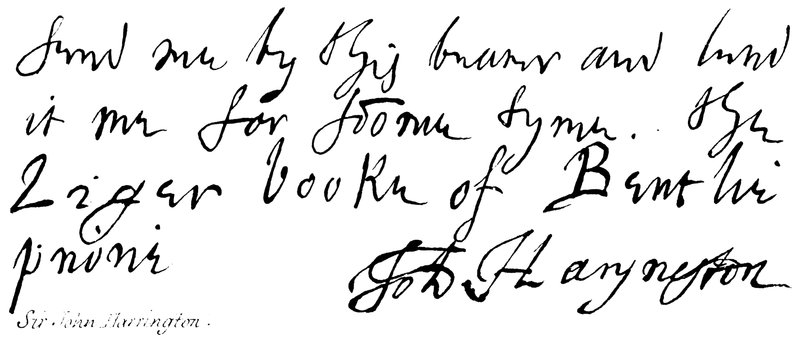 Send me by this bearer and lend
it me for soome tyme. the
Liger booke of Bentlie
priorie Joh Haryngton
Sir John Harrington.